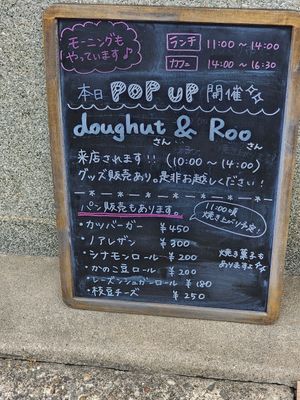 モーニングも
やっています♪
ランチ 11:00～14:00
カフェ 14:00～16:30
本日 POP UP 開催
doughut & Roo
さん さん
来店されます!! (10:00～14:00)
グッズ販売あり。是非お越しください!
パン販売もあります。
11:00頃
焼き上がり予定!
・カツバーガー ¥450
・ノアレザン ¥300
・シナモンロール ¥200
・かのこ豆ロール ¥200
・レーズンシュガーロール ¥180
・枝豆チーズ ¥250
焼き菓子も
ありますよ